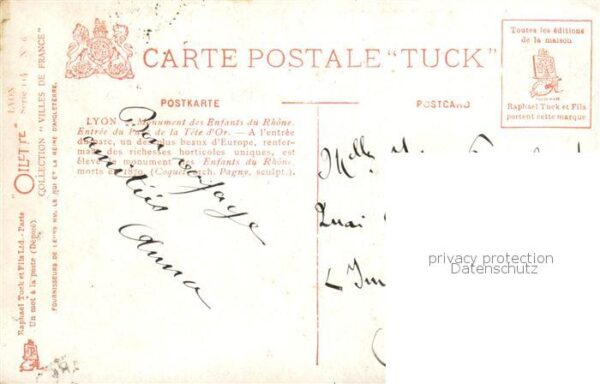 CARTE POSTALE "TUCK"
Toutes les éditions
de la maison
Raphael Tuck et Fils
portent cette marque
POSTKARTE
POSTCARD
LYON — Monument des Enfants du Rhône.
Entrée du Parc de la Tête d'Or. — A l'entrée
du parc, un des plus beaux d'Europe, renfer-
mant des richesses horticoles uniques, est
élevé un monument des Enfants du Rhône
morts en 1870. (Coquet arch. Pagny, sculpt.).
Bon voyage
amitiés
Anna
Melle
Quai
privacy protection
Datenschutz
LYON
Série 114 N° 6
"OILETTE"
COLLECTION "VILLES DE FRANCE"
FOURNISSEURS DE LEURS MM. LE ROI ET LA REINE D'ANGLETERRE.
Raphael Tuck et Fils Ltd. - Paris
Un mot à la poste (Déposé)